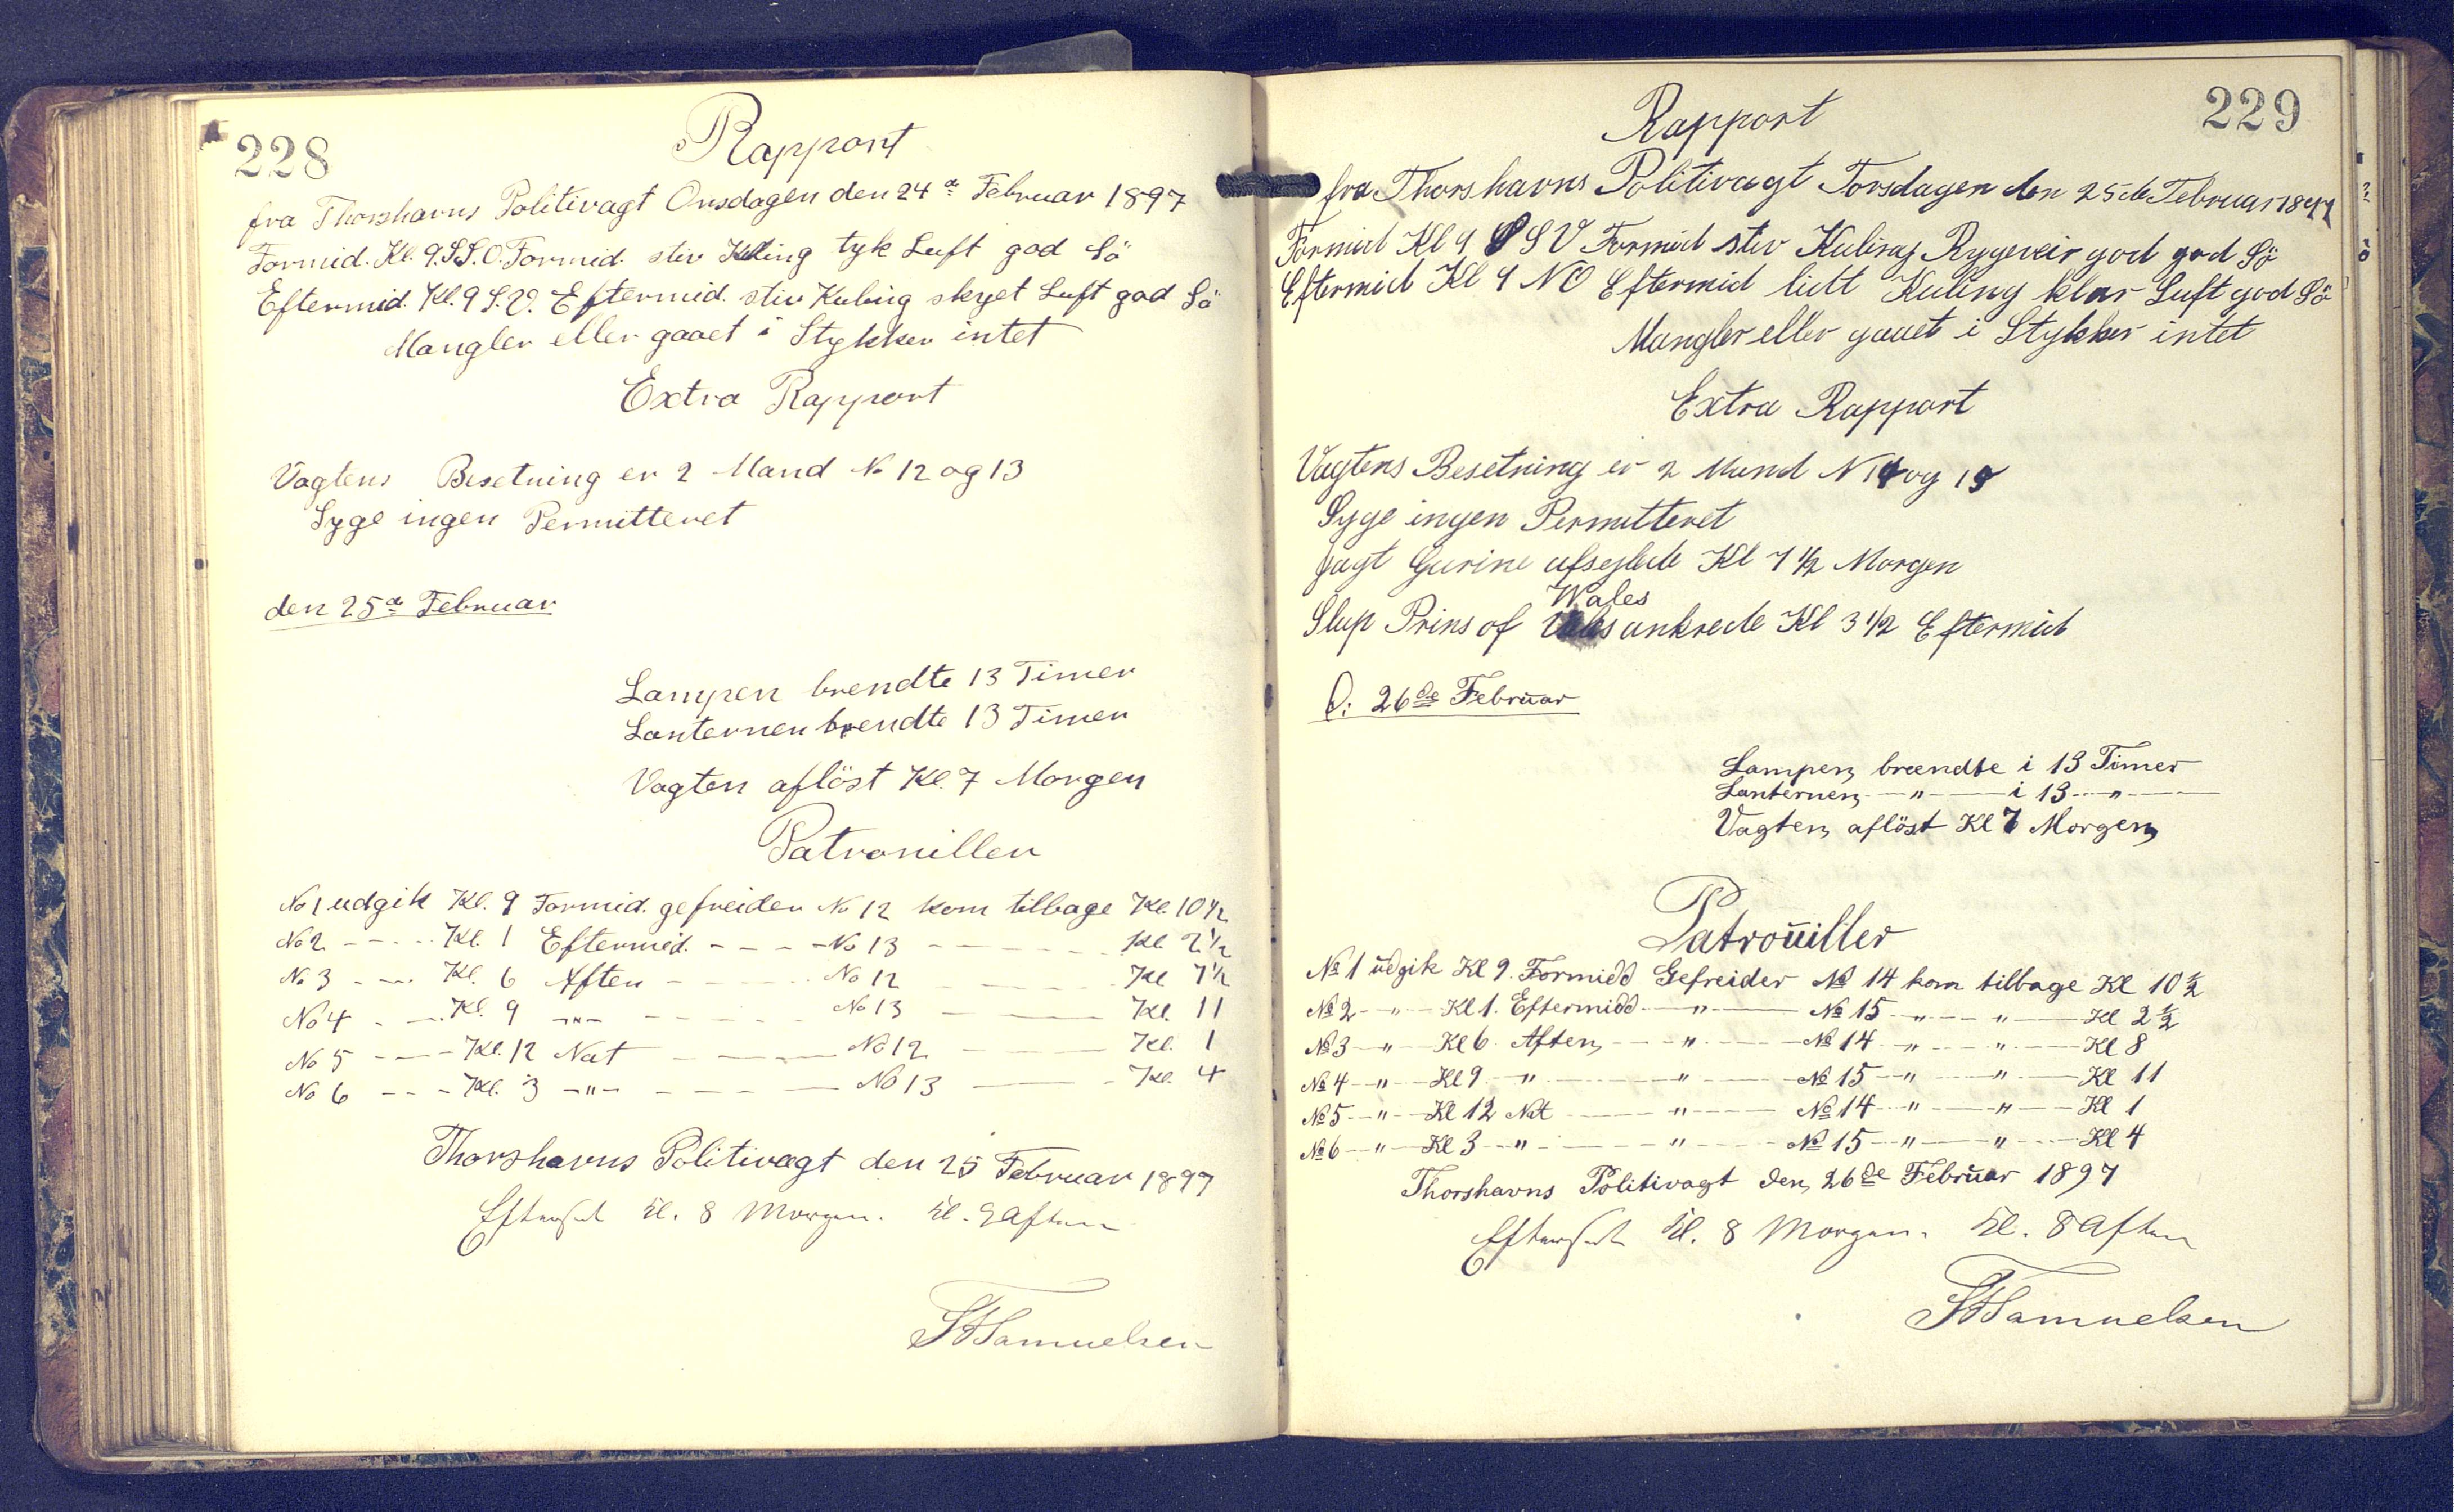 228
Rapport
fra Thorshavns Politivagt Onsdagen den 24de Februar 1897
Formid. Kl. 9. S.S.O. Formid. stiv Kuling tyk Luft god Sö
Eftermid. Kl. 9 S.V. Eftermid. stiv Kuling skyet Luft god Sö
Mangler eller gaaet i Stykker intet
Extra Rapport
Vagtens Besetning er 2 Mand No 12 og 13
Syge ingen Permitteret
den 25de Februar
Lampen brendte 13 Timer
Lanternen brendte 13 Timer
Vagten aflöst Kl. 7 Morgen
Patrouiller
No 1 udgik Kl. 9 Formid. gefreider No 12 kom tilbage Kl. 10 1/2
No 2 - - - - Kl. 1 Eftermid. - - - - No 13 - - - - Kl 2 1/2
No 3 - - - Kl. 6 Aften - - - - No 12 - - - - Kl 7 1/2
No 4 - - - Kl. 9 -"- - - - - No 13 - - - - Kl. 11
No 5 - - - Kl. 12 Nat - - - - No 12 - - - - Kl. 1
No 6 - - - Kl. 3 -"- - - - - No 13 - - - - Kl. 4
Thorshavns Politivagt den 25 Februar 1897
Efterset Kl. 8 Morgen. Kl. 9 Aften
Samuelsen
229
Rapport
fra Thorshavns Politivagt Torsdagen den 25de Februar 1897
Formid Kl 9 S V Formid stiv Kuling Rygeveir god god Sö
Eftermid Kl 9 NO Eftermid lidt Kuling klar Luft god Sö
Mangler eller gaaet i Stykker intet
Extra Rapport
Vagtens Besetning er 2 Mand N 14 og 15
Syge ingen Permitteret
Jagt Gurine afseglede Kl 7 1/2 Morgen
Wales
Slup Prins of ankrede Kl 3 1/2 Eftermid
D: 26de Februar
Lampen brændte i 13 Timer
Lanternen - " - i 13 - " -
Vagten aflöst Kl 7 Morgen
Patrouiller
No 1 udgik Kl 9. Formidd Gefreider No 14 kom tilbage Kl 10 1/2
No 2 - " - Kl 1. Eftermidd - " - No 15 - " - " - Kl 2 1/2
No 3 - " - Kl 6 Aften - " - No 14 - " - " - Kl 8
No 4 - " - Kl 9 - " - " - No 15 - " - " - Kl 11
No 5 - " - Kl 12 Nat - " - No 14 - " - " - Kl 1
No 6 - " - Kl 3 - " - " - No 15 - " - " - Kl 4
Thorshavns Politivagt den 26de Februar 1897
Efterset Kl. 8 Morgen. Kl. 8 Aften
Samuelsen